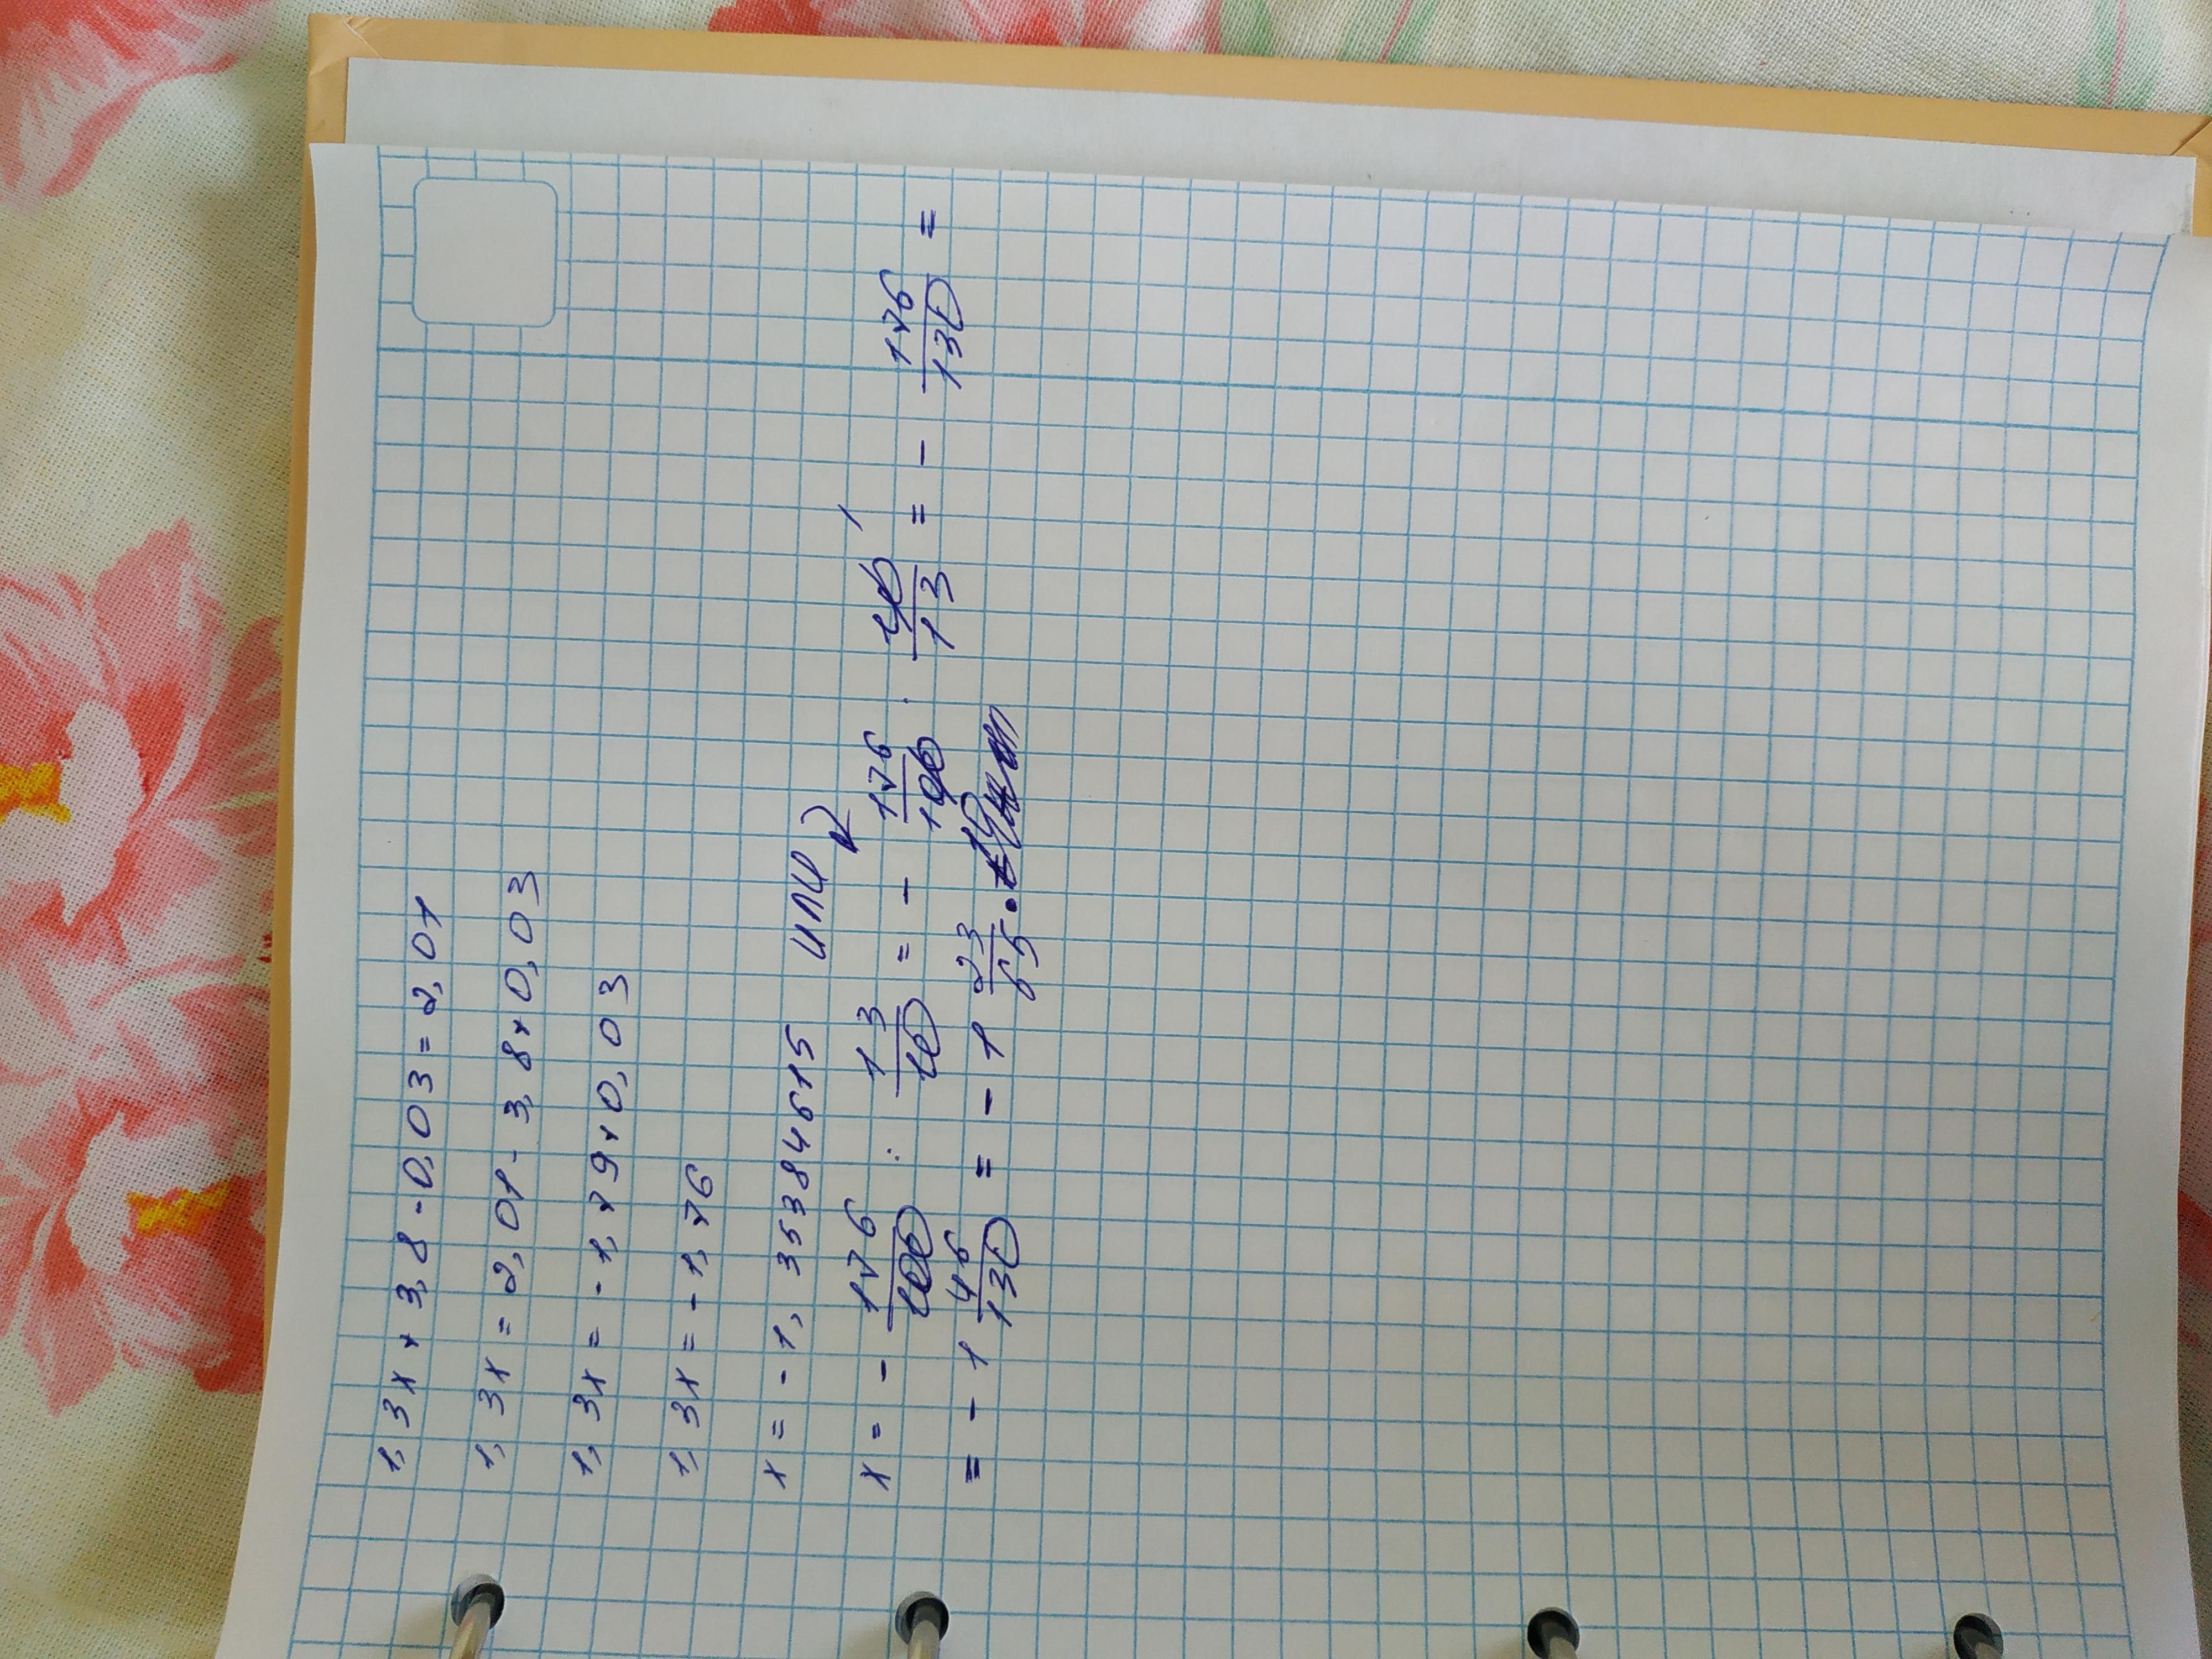 1,3x + 3,8 - 0,03 = 2,01
1,3x = 2,01 - 3,8 + 0,03
1,3x = -1,79 + 0,03
1,3x = -1,76
x = -1,35384615 или
x = - 176/100 : 13/10 = - 176/100 · 10/13 = - 176/130 =
= - 1 46/130 = - 1 23/65.